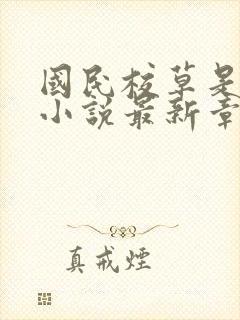 國民校草是
小說最新章
真戒煙